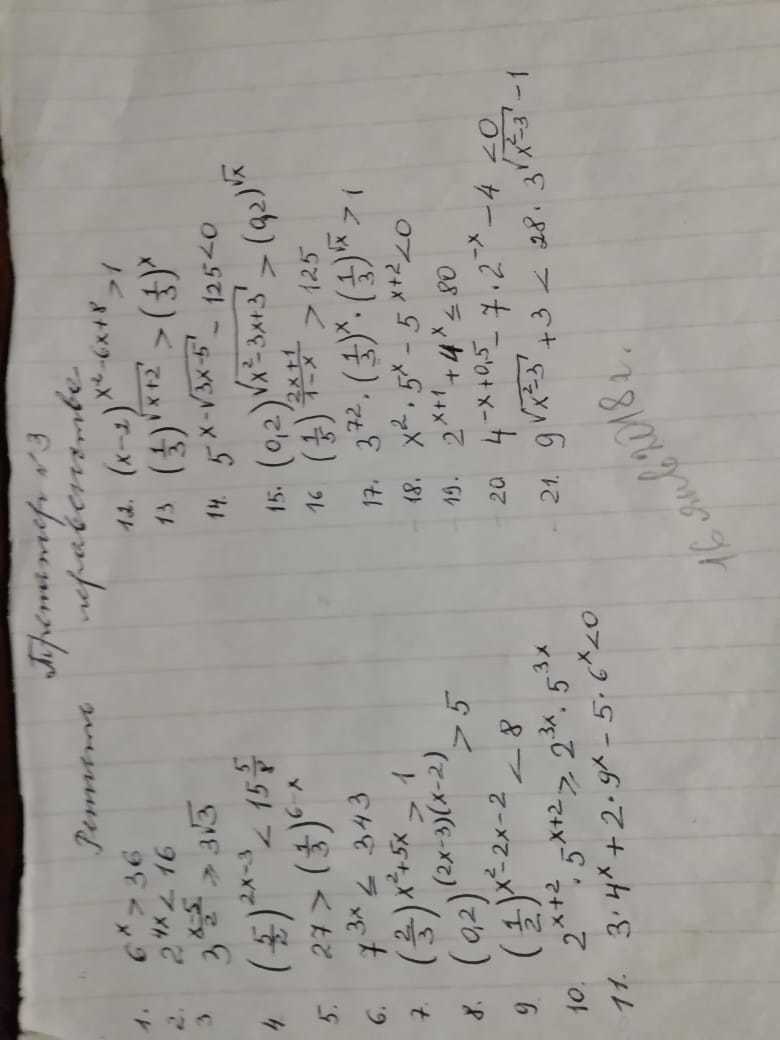 Тренажер №3
Решить неравенство
1. 6^x > 36
2. 2^{4x} < 16
3 3^{\frac{x-5}{2}} ⩾ 3√3
4 (\frac{5}{2})^{2x-3} < 15\frac{5}{8}
5. 27 > (\frac{1}{3})^{6-x}
6. 7^{3x} ≤ 343
7. (\frac{2}{3})^{x^2+5x} > 1
8. (0,2)^{(2x-3)(x-2)} > 5
9 (\frac{1}{2})^{x^2-2x-2} < 8
10. 2^{x+2} · 5^{x+2} ⩾ 2^{3x} · 5^{3x}
11. 3·4^x + 2·9^x - 5·6^x < 0
12. (x-2)^{x^2-6x+8} > 1
13 (\frac{1}{3})^{\sqrt{x+2}} > (\frac{1}{3})^x
14. 5^{x-\sqrt{3x-5}} - 125 < 0
15. (0,2)^{\sqrt{x^2-3x+3}} > (0,2)^{\sqrt{x}}
16 (\frac{1}{5})^{\frac{2x+1}{1-x}} > 125
17. 3^{72} · (\frac{1}{3})^x · (\frac{1}{3})^{\sqrt{x}} > 1
18. x^2 · 5^x - 5^{x+2} < 0
19. 2^{x+1} + 4^x ≤ 80
20 4^{-x+0,5} - 7·2^{-x} - 4 < 0
21. 9^{\sqrt{x^2-3}} + 3 < 28·3^{\sqrt{x^2-3}-1}
16 янв 2018г.